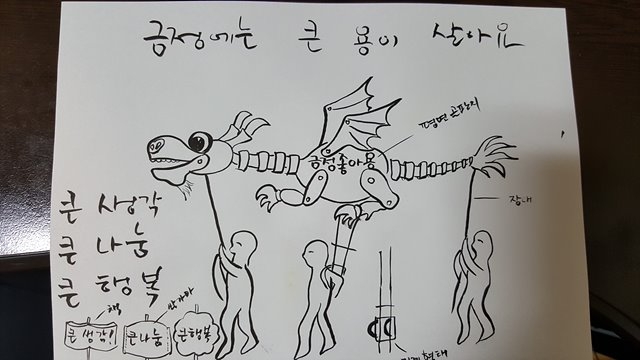 금정에는 큰 용이 살아요
평면 골판지
금정좋아용
장대
큰 생각
큰 나눔
큰 행복
책
박 가마
큰 생각!
큰나눔
큰행복
형태